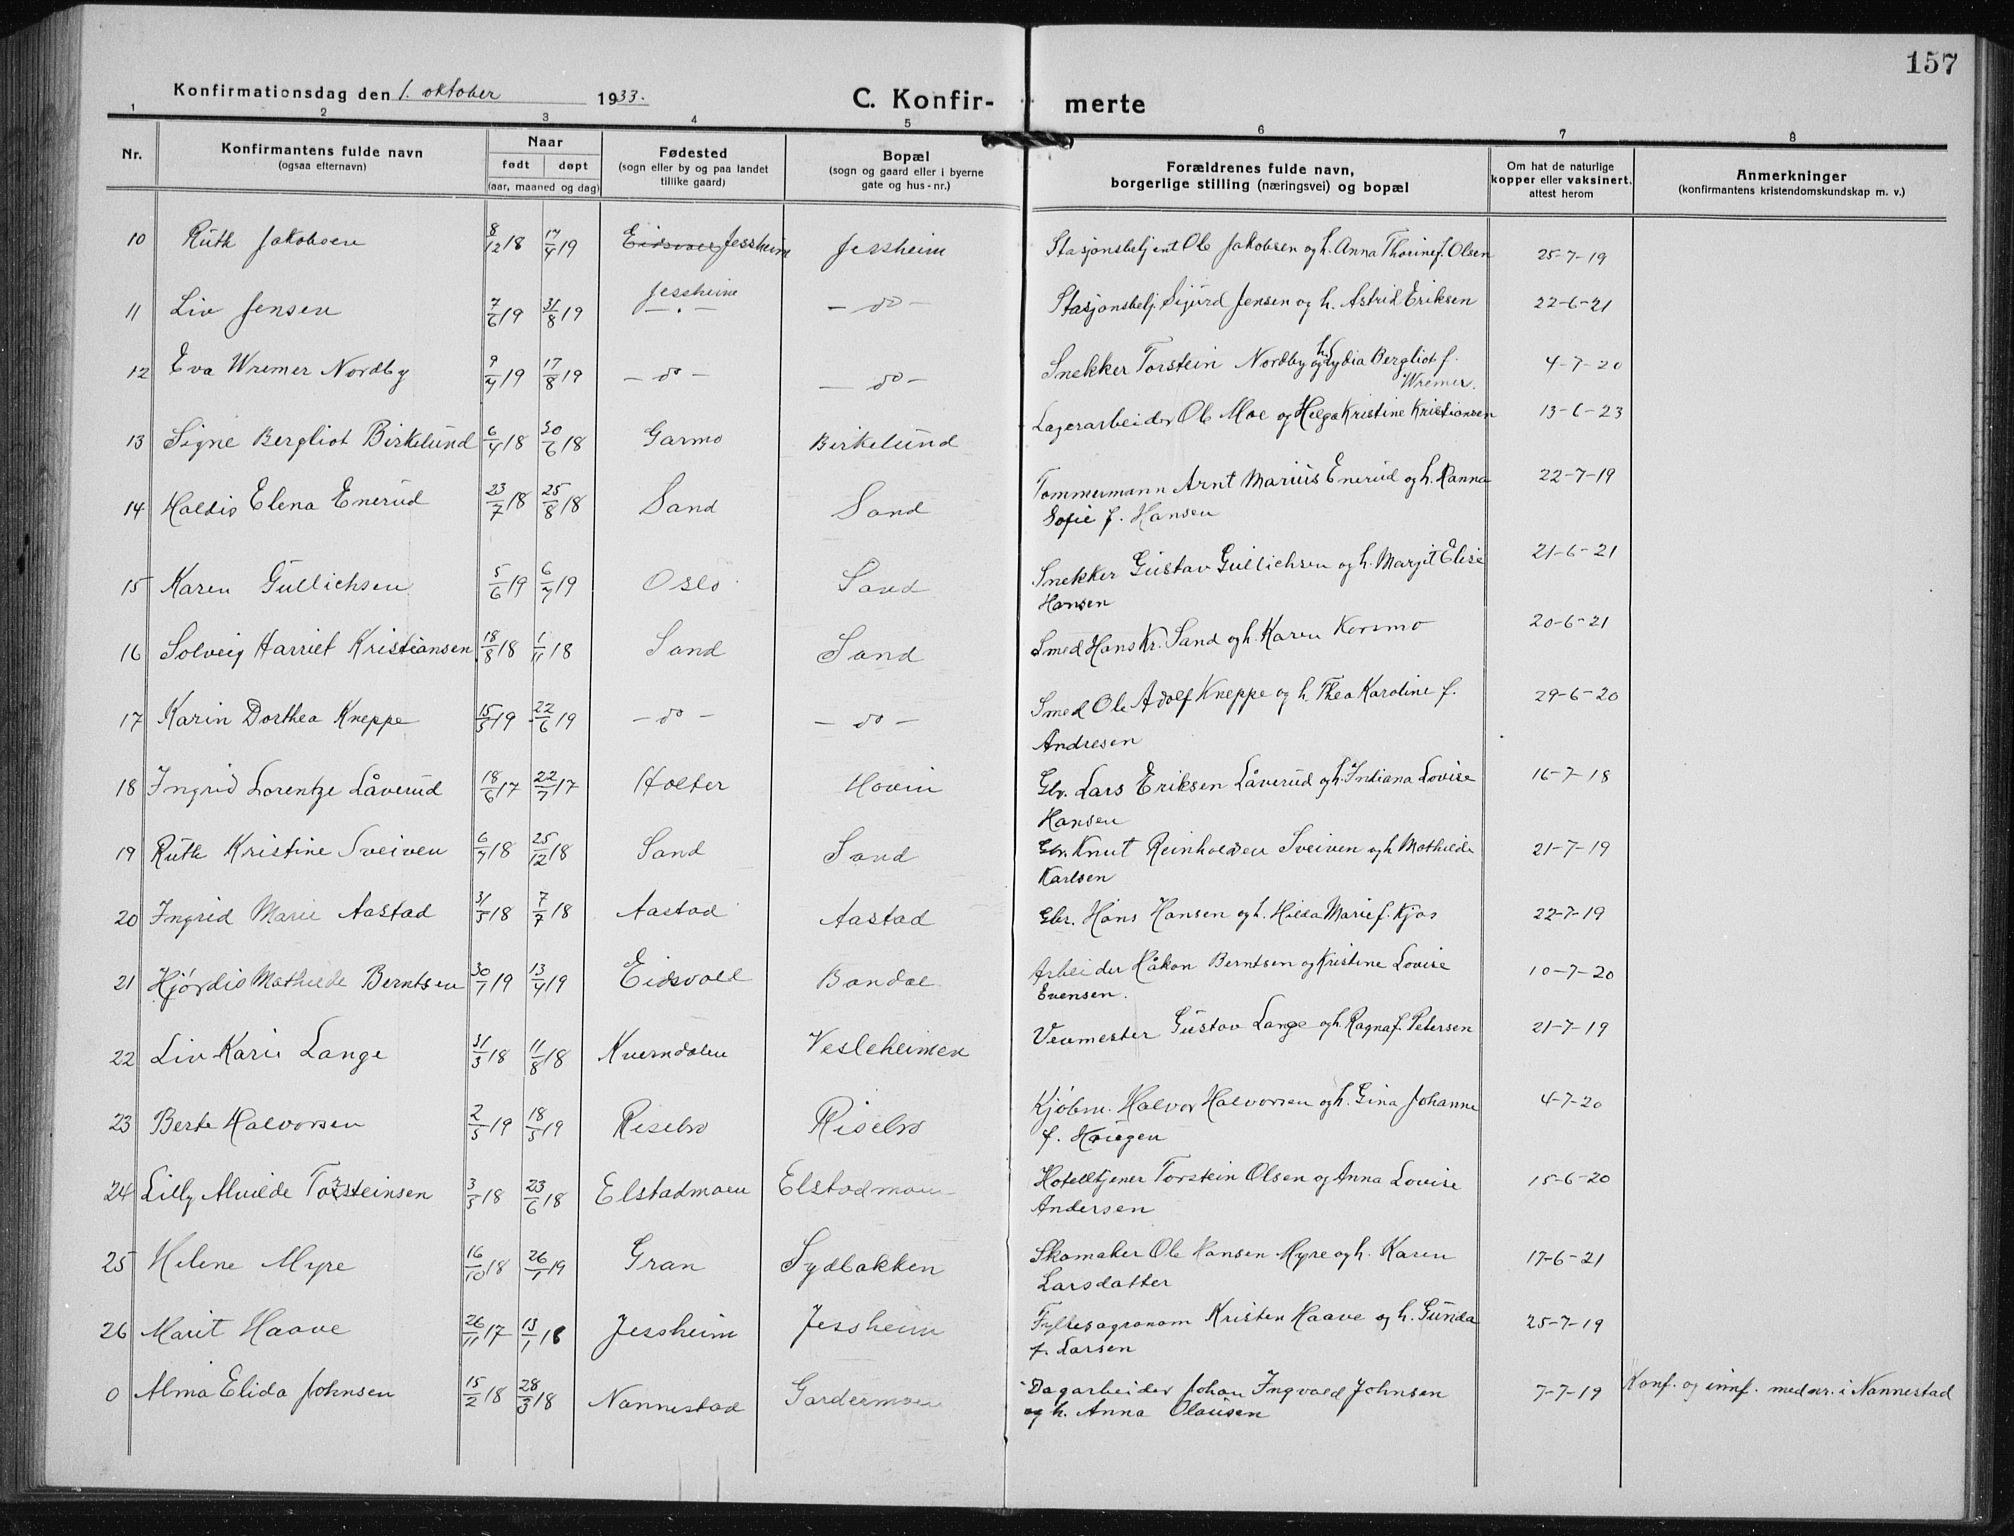 157
Konfirmationsdag den 1. oktober 1933.
C. Konfir- merte
1 2 3 4 5 6 7 8
Nr.
Konfirmantens fulde navn
(ogsaa efternavn)
Naar
født døpt
(aar, maaned og dag)
Fødested
(sogn eller by og paa landet
tillike gaard)
Bopæl
(sogn og gaard eller i byerne
gate og hus-nr.)
Forældrenes fulde navn,
borgerlige stilling (næringsvei) og bopæl
Om hat de naturlige
kopper eller vaksinert,
attest herom
Anmerkninger
(konfirmantens kristendomskundskap m. v.)
10 Ruth Jakobsen 8/12 18 17/4 19 Eidsvoll Jessheim Jessheim Stasjonsbetjent Ole Jakobsen og h. Anna Thorine f. Olsen 25-7-19
11 Liv Jensen 7/6 19 31/8 19 Jessheim - do - Stasjonsbetj. Sigurd Jensen og h. Astrid Eriksen 22-6-21
12 Eva Wremer Nordby 9/4 19 17/8 19 - do - - do - Snekker Torstein Nordby og h. Lydia Bergliot f.
Wremer. 4-7-20
13 Signe Bergliot Birkelund 6/4 18 30/6 18 Garmo Birkelund Lagerarbeider Ole Moe og Helga Kristine Kristiansen 13-6-23
14 Haldis Elena Enerud 23/7 18 25/8 18 Sand Sand Tommermann Arnt Marius Enerud og h. Hanna
Sofie f. Hansen 22-7-19
15 Karen Gullichsen 5/6 19 6/7 19 Oslo Sand Snekker Gustav Gullichsen og h. Margit Elise
Hansen 21-6-21
16 Solveig Harriet Kristiansen 18/8 18 1/11 18 Sand Sand Smed Hans Kr. Sand og h. Karen Korsmo 20-6-21
17 Karin Dorthea Kneppe 15/5 19 22/6 19 - do - - do - Smed Ole Adolf Kneppe og h. Thea Karoline f.
Andresen 29-6-20
18 Ingrid Lorentze Låverud 18/6 17 22/7 17 Holter Hovin Gbr. Lars Eriksen Låverud og h. Indiana Lovise
Hansen 16-7-18
19 Ruth Kristine Sveiven 6/7 18 25/12 18 Sand Sand Gbr. Knut Reinholdsen Sveiven og h Mathilde
Karlsen 21-7-19
20 Ingrid Marie Aastad 31/5 18 7/7 18 Aastad Aastad Gbr. Hans Hansen og h. Hilda Marie f. Kjos 22-7-19
21 Hjørdis Mathilde Berntsen 30/1 19 13/4 19 Eidsvold Bondal Arbeider Håkon Berntsen og Kristine Lovise
Evensen. 10-7-20
22 Liv Karie Lange 31/3 18 11/8 18 Kverndalen Vesleheimen Veumester Gustav Lange og h. Ragna f. Petersen 21-7-19
23 Berta Halvorsen 2/5 19 18/5 19 Risebro Risebro Kjøbm. Halvor Halvorsen og h. Gina Johanne
f. Haugen 4-7-20
24 Lilly Alvilde Torsteinsen 3/5 18 23/6 18 Elstadmoen Elstadmoen Hotelltjener Torstein Olsen og Anna Lovise
Andersen 15-6-20
25 Helene Myre 16/10 18 26/1 19 Gran Sydbakken Skomaker Ole Hansen Myre og h. Karen
Larsdatter 17-6-21
26 Marit Haave 26/11 17 13/1 18 Jessheim Jessheim Fylkesagronom Kristen Haave og h. Gunda
f. Larsen 25-7-19
0 Alma Elida Johnsen 15/2 18 28/3 18 Nannestad Gardermoen Dagarbeider Johan Ingvald Johnsen
og h. Anna Olausen 7-7-19 Konf. og innf. med nr. i Nannestad